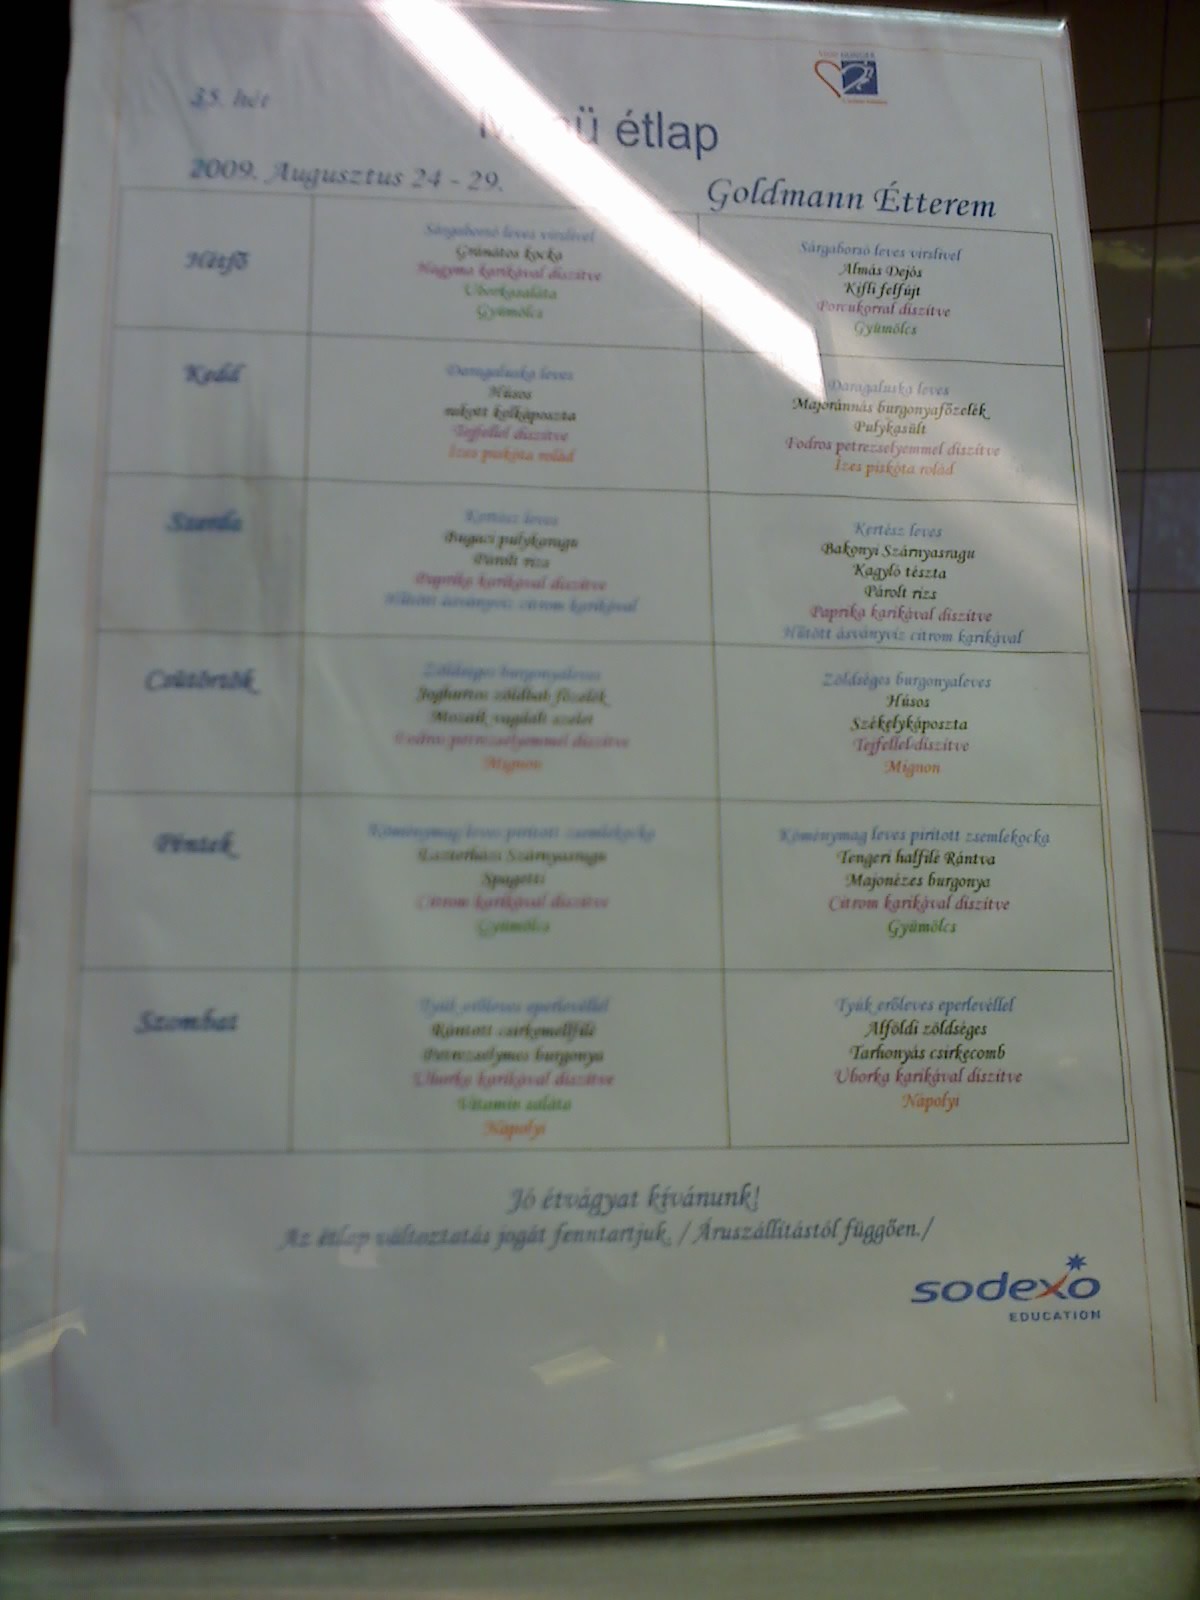 35. hét
Menü étlap
2009. Augusztus 24 - 29.
Goldmann Étterem
Hétfő
Sárgaborsó leves virslivel
Gránátos kocka
Hagyma karikával díszítve
Uborkasaláta
Gyümölcs
Sárgaborsó leves virslivel
Almás Dejós
Kifli felfújt
Porcukorral díszítve
Gyümölcs
Kedd
Daragaluska leves
Húsos
rakott kelkáposzta
Tejfellel díszítve
Ízes piskóta rolád
Daragaluska leves
Majoránnás burgonyafőzelék
Pulykasült
Fodros petrezselyemmel díszítve
Ízes piskóta rolád
Szerda
Kertész leves
Bugaci pulykaragu
Párolt rizs
Paprika karikával díszítve
Hűtött ásványvíz citrom karikával
Kertész leves
Bakonyi Szárnyasragu
Kagyló tészta
Párolt rizs
Paprika karikával díszítve
Hűtött ásványvíz citrom karikával
Csütörtök
Zöldséges burgonyaleves
Joghurtos zöldbab főzelék
Mozaik vagdalt szelet
Fodros petrezselyemmel díszítve
Mignon
Zöldséges burgonyaleves
Húsos
Székelykáposzta
Tejfellel díszítve
Mignon
Péntek
Köménymag leves pirított zsemlekocka
Eszterházi Szárnyasragu
Spagetti
Citrom karikával díszítve
Gyümölcs
Köménymag leves pirított zsemlekocka
Tengeri halfilé Rántva
Majonézes burgonya
Citrom karikával díszítve
Gyümölcs
Szombat
Tyúk erőleves eperlevéllel
Rántott csirkemellfilé
Petrezselymes burgonya
Uborka karikával díszítve
Vitamin saláta
Nápolyi
Tyúk erőleves eperlevéllel
Alföldi zöldséges
Tarhonyás csirkecomb
Uborka karikával díszítve
Nápolyi
Jó étvágyat kívánunk!
Az étlap változtatás jogát fenntartjuk. / Áruszállítástól függően./
sodexo
EDUCATION